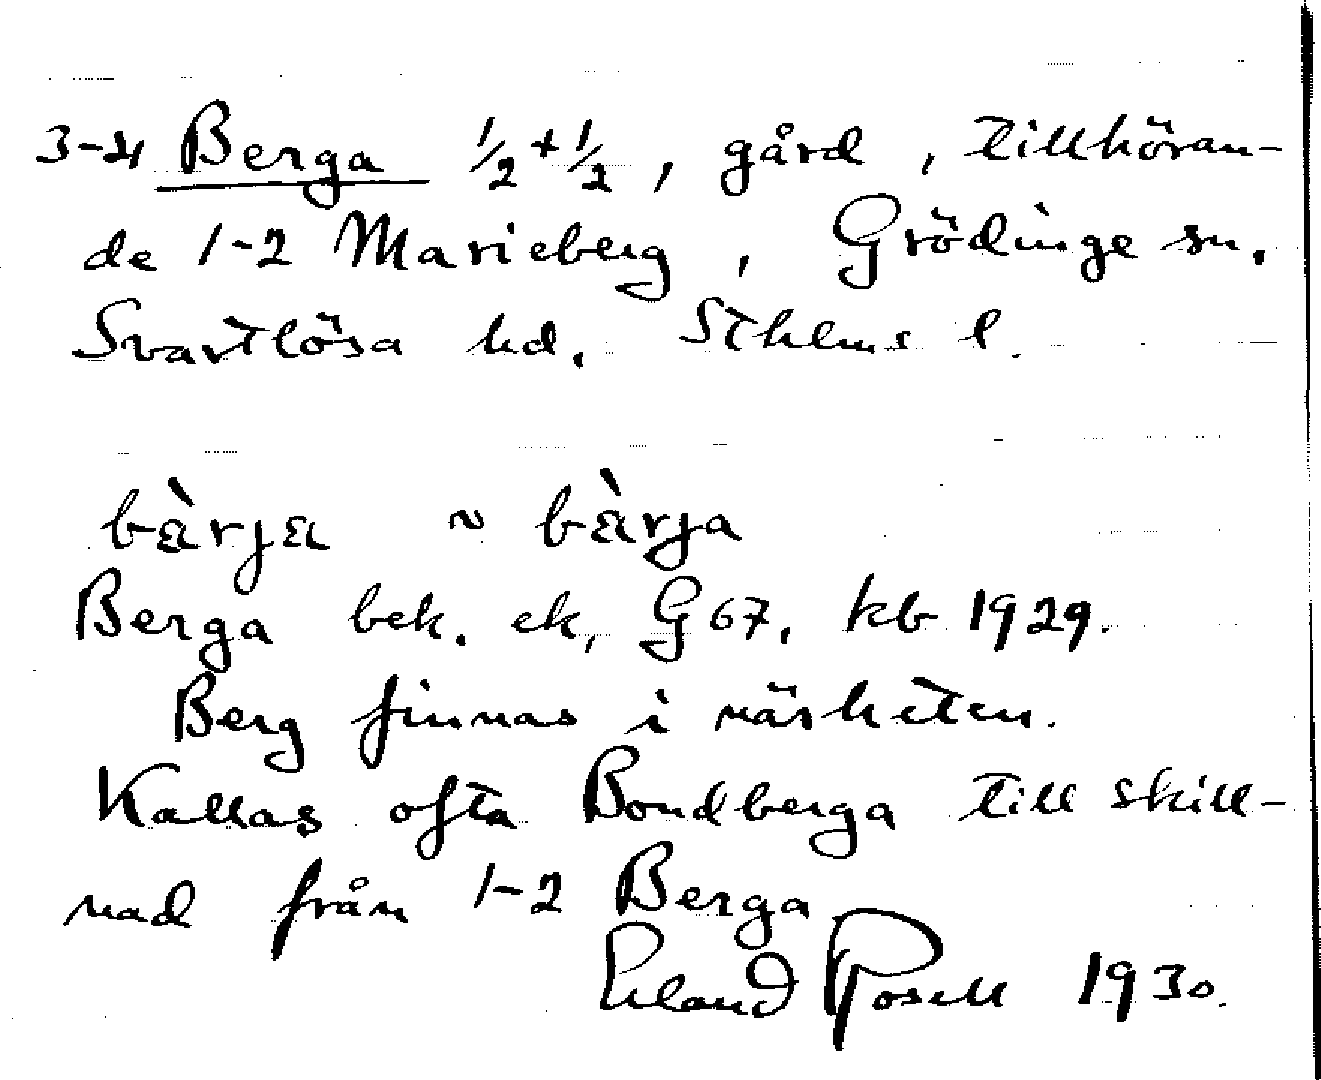 3-4 Berga ½+½, gård, tillhöran-
de 1-2 Marieberg, Grödinge sn.
Svartlösa hd. Sthlms l.
bàrja ~ bàrja
Berga bek. ek, G67, kb 1929.
Berg finnas i närheten.
Kallas ofta Bondberga till skill-
nad från 1-2 Berga
Erland Rosell 1930.